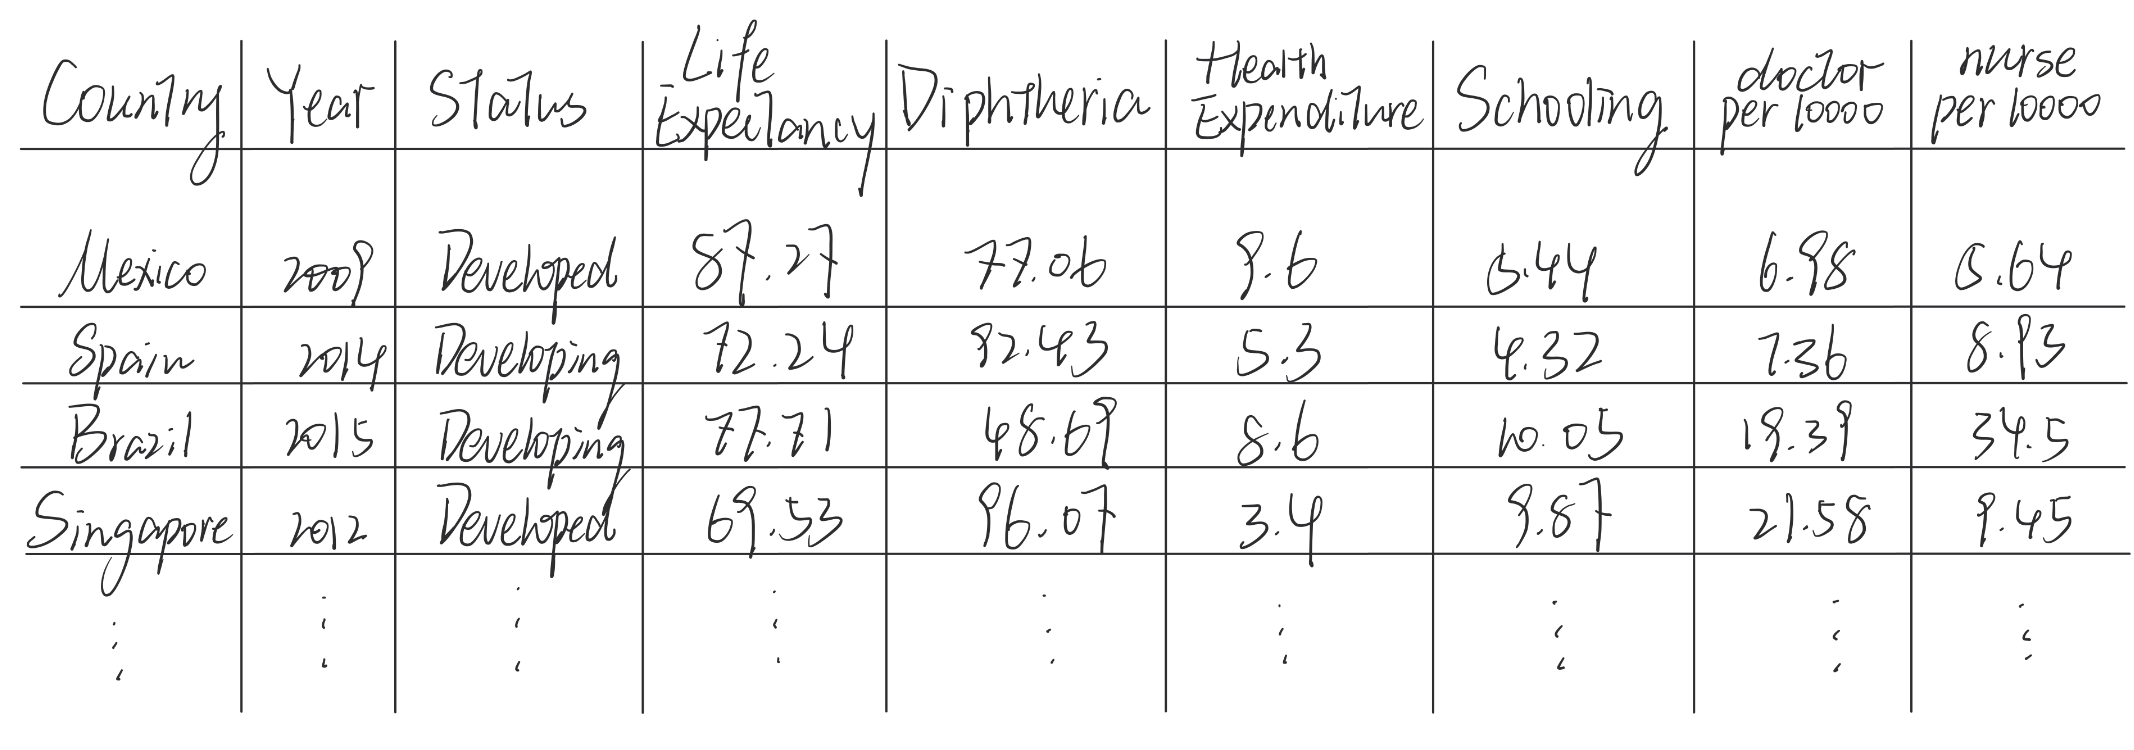 Country Year Status Life Expectancy Diphtheria Health Expenditure Schooling doctor per 10000 nurse per 10000
Mexico 2009 Developed 87.27 77.06 9.6 5.44 6.98 5.64
Spain 2014 Developing 72.24 92.43 5.3 4.32 7.36 8.93
Brazil 2015 Developing 77.71 48.69 8.6 10.05 19.39 34.5
Singapore 2012 Developed 69.53 96.07 3.4 9.87 21.58 9.45